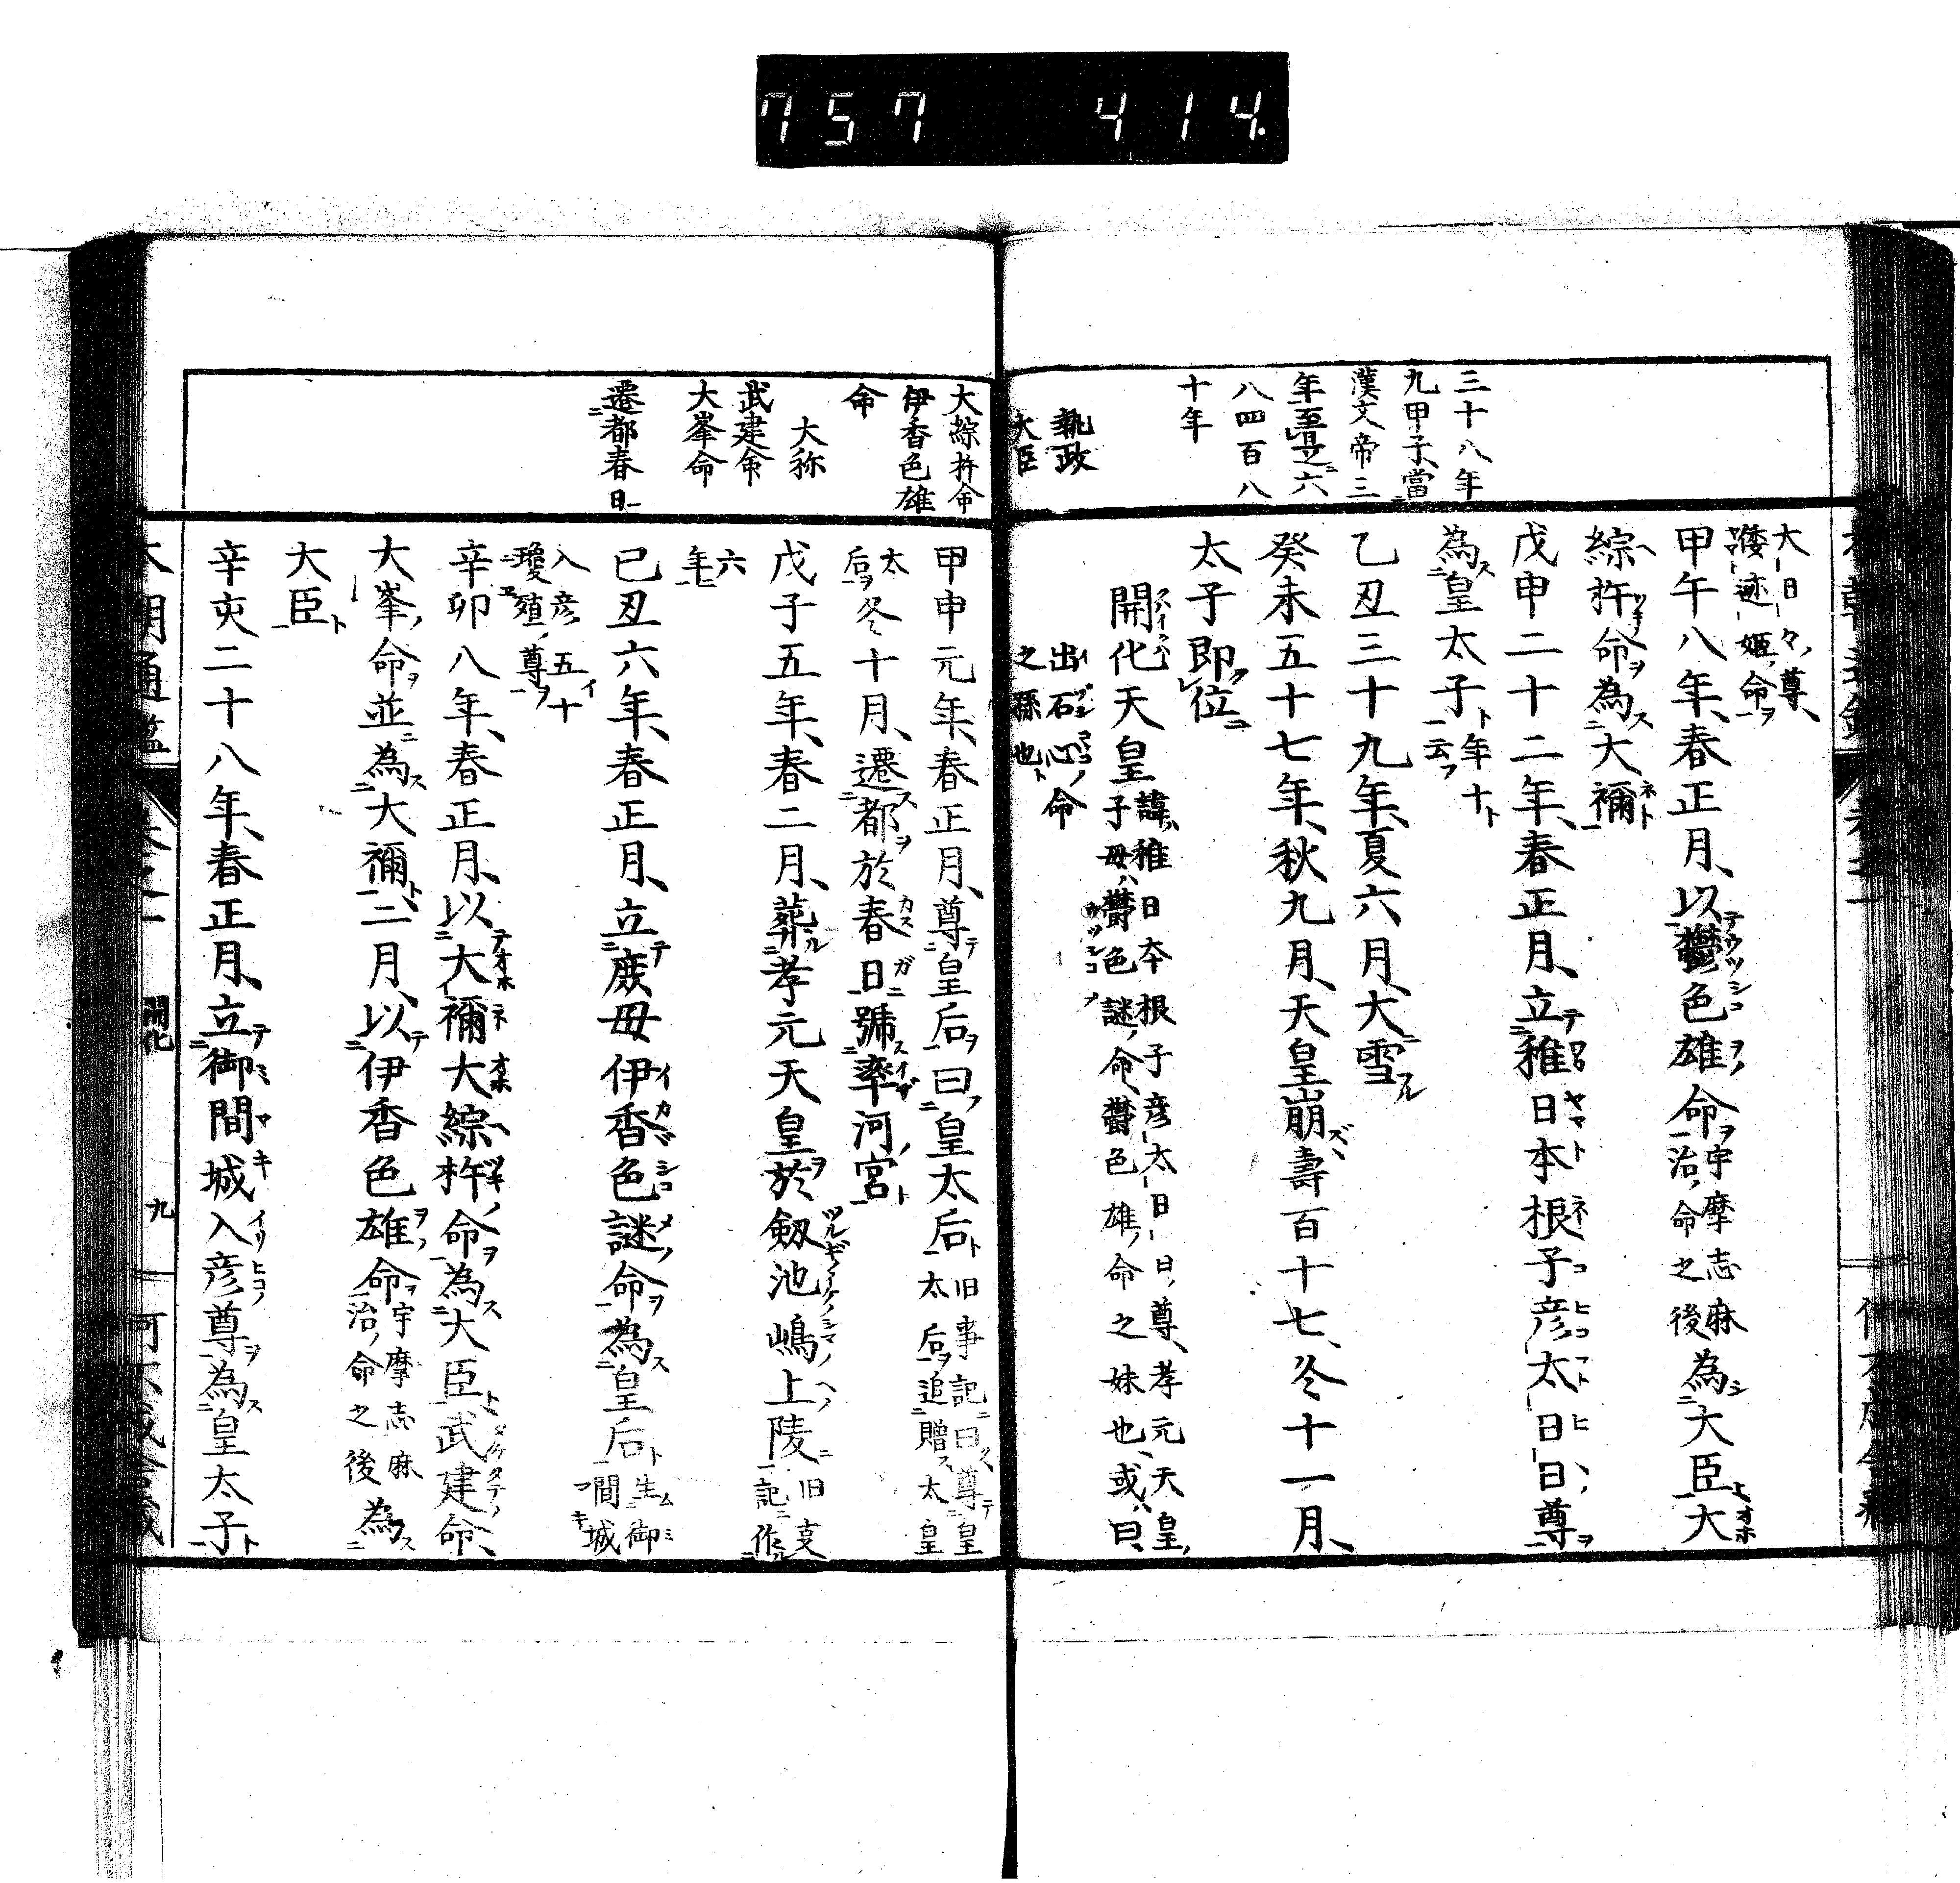 757 414.
三十八年
九甲子當
漢文帝三
年至是六
八四百八
十年
執政
大臣
大日々尊
倭迹姬命
甲午八年春正月以鬱色雄命宇摩志麻治命之後為大臣大
綜杵命為大禰
戊申二十二年春正月立稚日本根子彦太日日尊
為皇太子年十云
乙丑三十九年夏六月大雪
癸未五十七年秋九月天皇崩壽百十七冬十一月
太子即位
開化天皇諱稚日本根子彦太日日尊孝元天皇
子母鬱色謎命鬱色雄命之妹也或曰
出石心命
之孫也
大綜杵命
伊香色雄
命
大称
武建命
大峯命
遷都春日
甲申元年春正月尊皇后曰皇太后旧事記曰尊皇
太后追贈太皇
太
后冬十月遷都於春日號率河宮
戊子五年春二月葬孝元天皇於劔池嶋上陵旧支
記作
六
年
己丑六年春正月立庶母伊香色謎命為皇后生御
間城
入彦五十
瓊殖尊
辛卯八年春正月以大禰大綜杵命為大臣武建命
大峯命並為大禰二月以伊香色雄命宇摩志麻治命之後為
大臣
辛亥二十八年春正月立御間城入彦尊為皇太子
開化
九